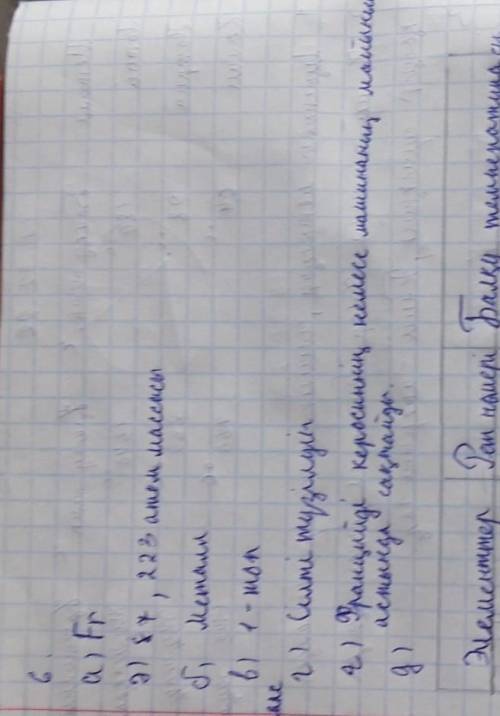 6.
а) Fr
ә) 87, 223 атом массасы
б) Металл
в) 1-топ
г) Сілті түзілді
ғ) Францийді керосиннің немесе машинаның майының
астында сақтайды.
д)
Элементтер Рет нөмері Балқу температурасы